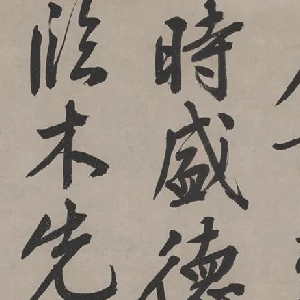 時盛德
臨木先